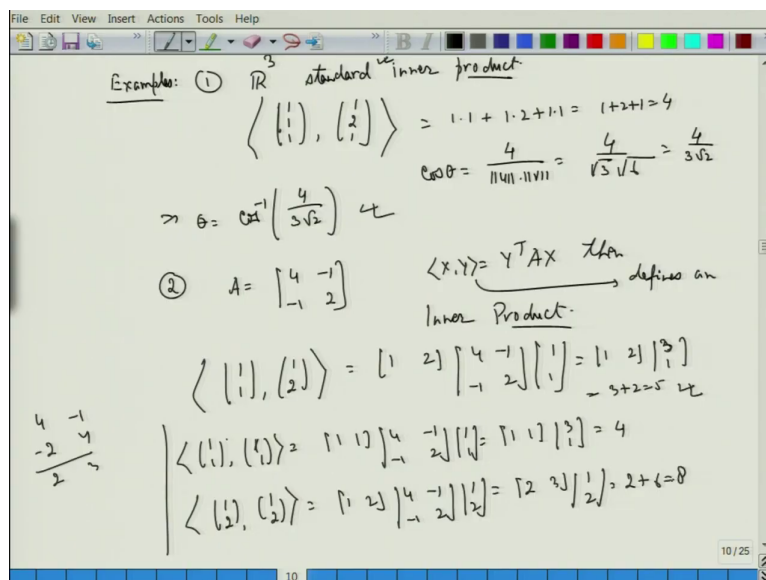 File Edit View Insert Actions Tools Help
Examples: ① ℝ³ standard inner product
⟨(1 1 1), (1 2 1)⟩ = 1·1 + 1·2 + 1·1 = 1+2+1 = 4
cos θ = 4/(||u||·||v||) = 4/(√3 √6) = 4/(3√2)
⇒ θ = cos⁻¹(4/(3√2))
② A = [4 -1; -1 2] ⟨X,Y⟩ = Yᵀ A X then defines an
Inner Product.
⟨(1 1), (1 2)⟩ = [1 2] [4 -1; -1 2] [1 1] = [1 2] [3 1]
= 3+2 = 5
4 -1
-2 4
2 3
⟨(1 1), (1 1)⟩ = [1 1] [4 -1; -1 2] [1 1] = [1 1] [3 1] = 4
⟨(1 2), (1 2)⟩ = [1 2] [4 -1; -1 2] [1 2] = [2 3] [1 2] = 2+6 = 8
10/25
10